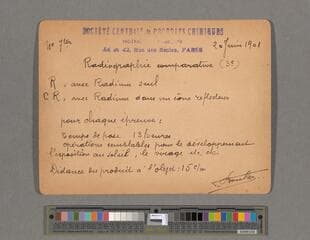 SOCIÉTÉ CENTRALE de PRODUITS CHIMIQUES
44 et 42, Rue des Ecoles, PARIS
2 Juin 1901
Radiographie comparative (3e)
R, avec Radium seul
CR, avec Radium dans un cône reflecteur
pour chaque épreuve :
temps de pose 13 heures
opérations semblables pour le développement
l'exposition au soleil, le virage etc, etc
Distance du produit à l'objet : 15 c/m